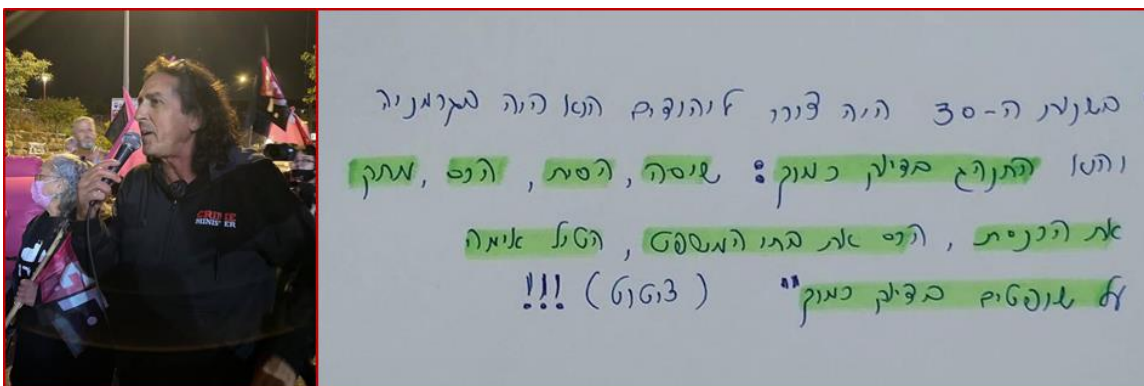 CRIME
MINISTER
בשנות ה-30 היה צורר ליהודים הוא היה בגרמניה
והוא התנהג בדיוק כמוך: שיסה, הסית, הרס, מחק
את הכנסת, הרס את בתי המשפט, הטיל אימה
על שופטים בדיוק כמוך" (ציטוט) !!!